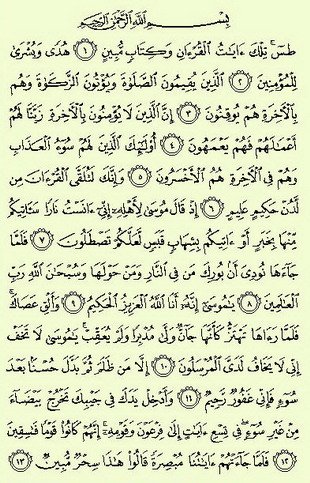 بِسْمِ اللَّهِ الرَّحْمَٰنِ الرَّحِيمِ
طسٓ ۚ تِلْكَ ءَايَٰتُ الْقُرْءَانِ وَكِتَابٍ مُّبِينٍ ﴿١﴾ هُدًى وَبُشْرَىٰ
لِلْمُؤْمِنِينَ ﴿٢﴾ الَّذِينَ يُقِيمُونَ الصَّلَوٰةَ وَيُؤْتُونَ الزَّكَوٰةَ وَهُم
بِالْءَاخِرَةِ هُمْ يُوقِنُونَ ﴿٣﴾ إِنَّ الَّذِينَ لَا يُؤْمِنُونَ بِالْءَاخِرَةِ زَيَّنَّا لَهُمْ
أَعْمَٰلَهُمْ فَهُمْ يَعْمَهُونَ ﴿٤﴾ أُو۟لَٰٓئِكَ الَّذِينَ لَهُمْ سُوٓءُ الْعَذَابِ
وَهُمْ فِي الْءَاخِرَةِ هُمُ الْأَخْسَرُونَ ﴿٥﴾ وَإِنَّكَ لَتُلَقَّى الْقُرْءَانَ مِن
لَّدُنْ حَكِيمٍ عَلِيمٍ ﴿٦﴾ إِذْ قَالَ مُوسَىٰ لِأَهْلِهِۦٓ إِنِّيٓ ءَانَسْتُ نَارًا سَـَٔاتِيكُم
مِّنْهَا بِخَبَرٍ أَوْ ءَاتِيكُم بِشِهَابٍ قَبَسٍ لَّعَلَّكُمْ تَصْطَلُونَ ﴿٧﴾ فَلَمَّا
جَآءَهَا نُودِيَ أَنۢ بُورِكَ مَن فِي النَّارِ وَمَنْ حَوْلَهَا وَسُبْحَٰنَ اللَّهِ رَبِّ
الْعَٰلَمِينَ ﴿٨﴾ يَٰمُوسَىٰٓ إِنَّهُۥٓ أَنَا اللَّهُ الْعَزِيزُ الْحَكِيمُ ﴿٩﴾ وَأَلْقِ عَصَاكَ ۚ
فَلَمَّا رَءَاهَا تَهْتَزُّ كَأَنَّهَا جَآنٌّ وَلَّىٰ مُدْبِرًا وَلَمْ يُعَقِّبْ ۚ يَٰمُوسَىٰ لَا تَخَفْ
إِنِّي لَا يَخَافُ لَدَيَّ الْمُرْسَلُونَ ﴿١٠﴾ إِلَّا مَن ظَلَمَ ثُمَّ بَدَّلَ حُسْنًۢا بَعْدَ
سُوٓءٍ فَإِنِّي غَفُورٌ رَّحِيمٌ ﴿١١﴾ وَأَدْخِلْ يَدَكَ فِي جَيْبِكَ تَخْرُجْ بَيْضَآءَ
مِنْ غَيْرِ سُوٓءٍ ۖ فِي تِسْعِ ءَايَٰتٍ إِلَىٰ فِرْعَوْنَ وَقَوْمِهِۦٓ ۚ إِنَّهُمْ كَانُوا۟ قَوْمًا فَٰسِقِينَ
﴿١٢﴾ فَلَمَّا جَآءَتْهُمْ ءَايَٰتُنَا مُبْصِرَةً قَالُوا۟ هَٰذَا سِحْرٌ مُّبِينٌ ﴿١٣﴾